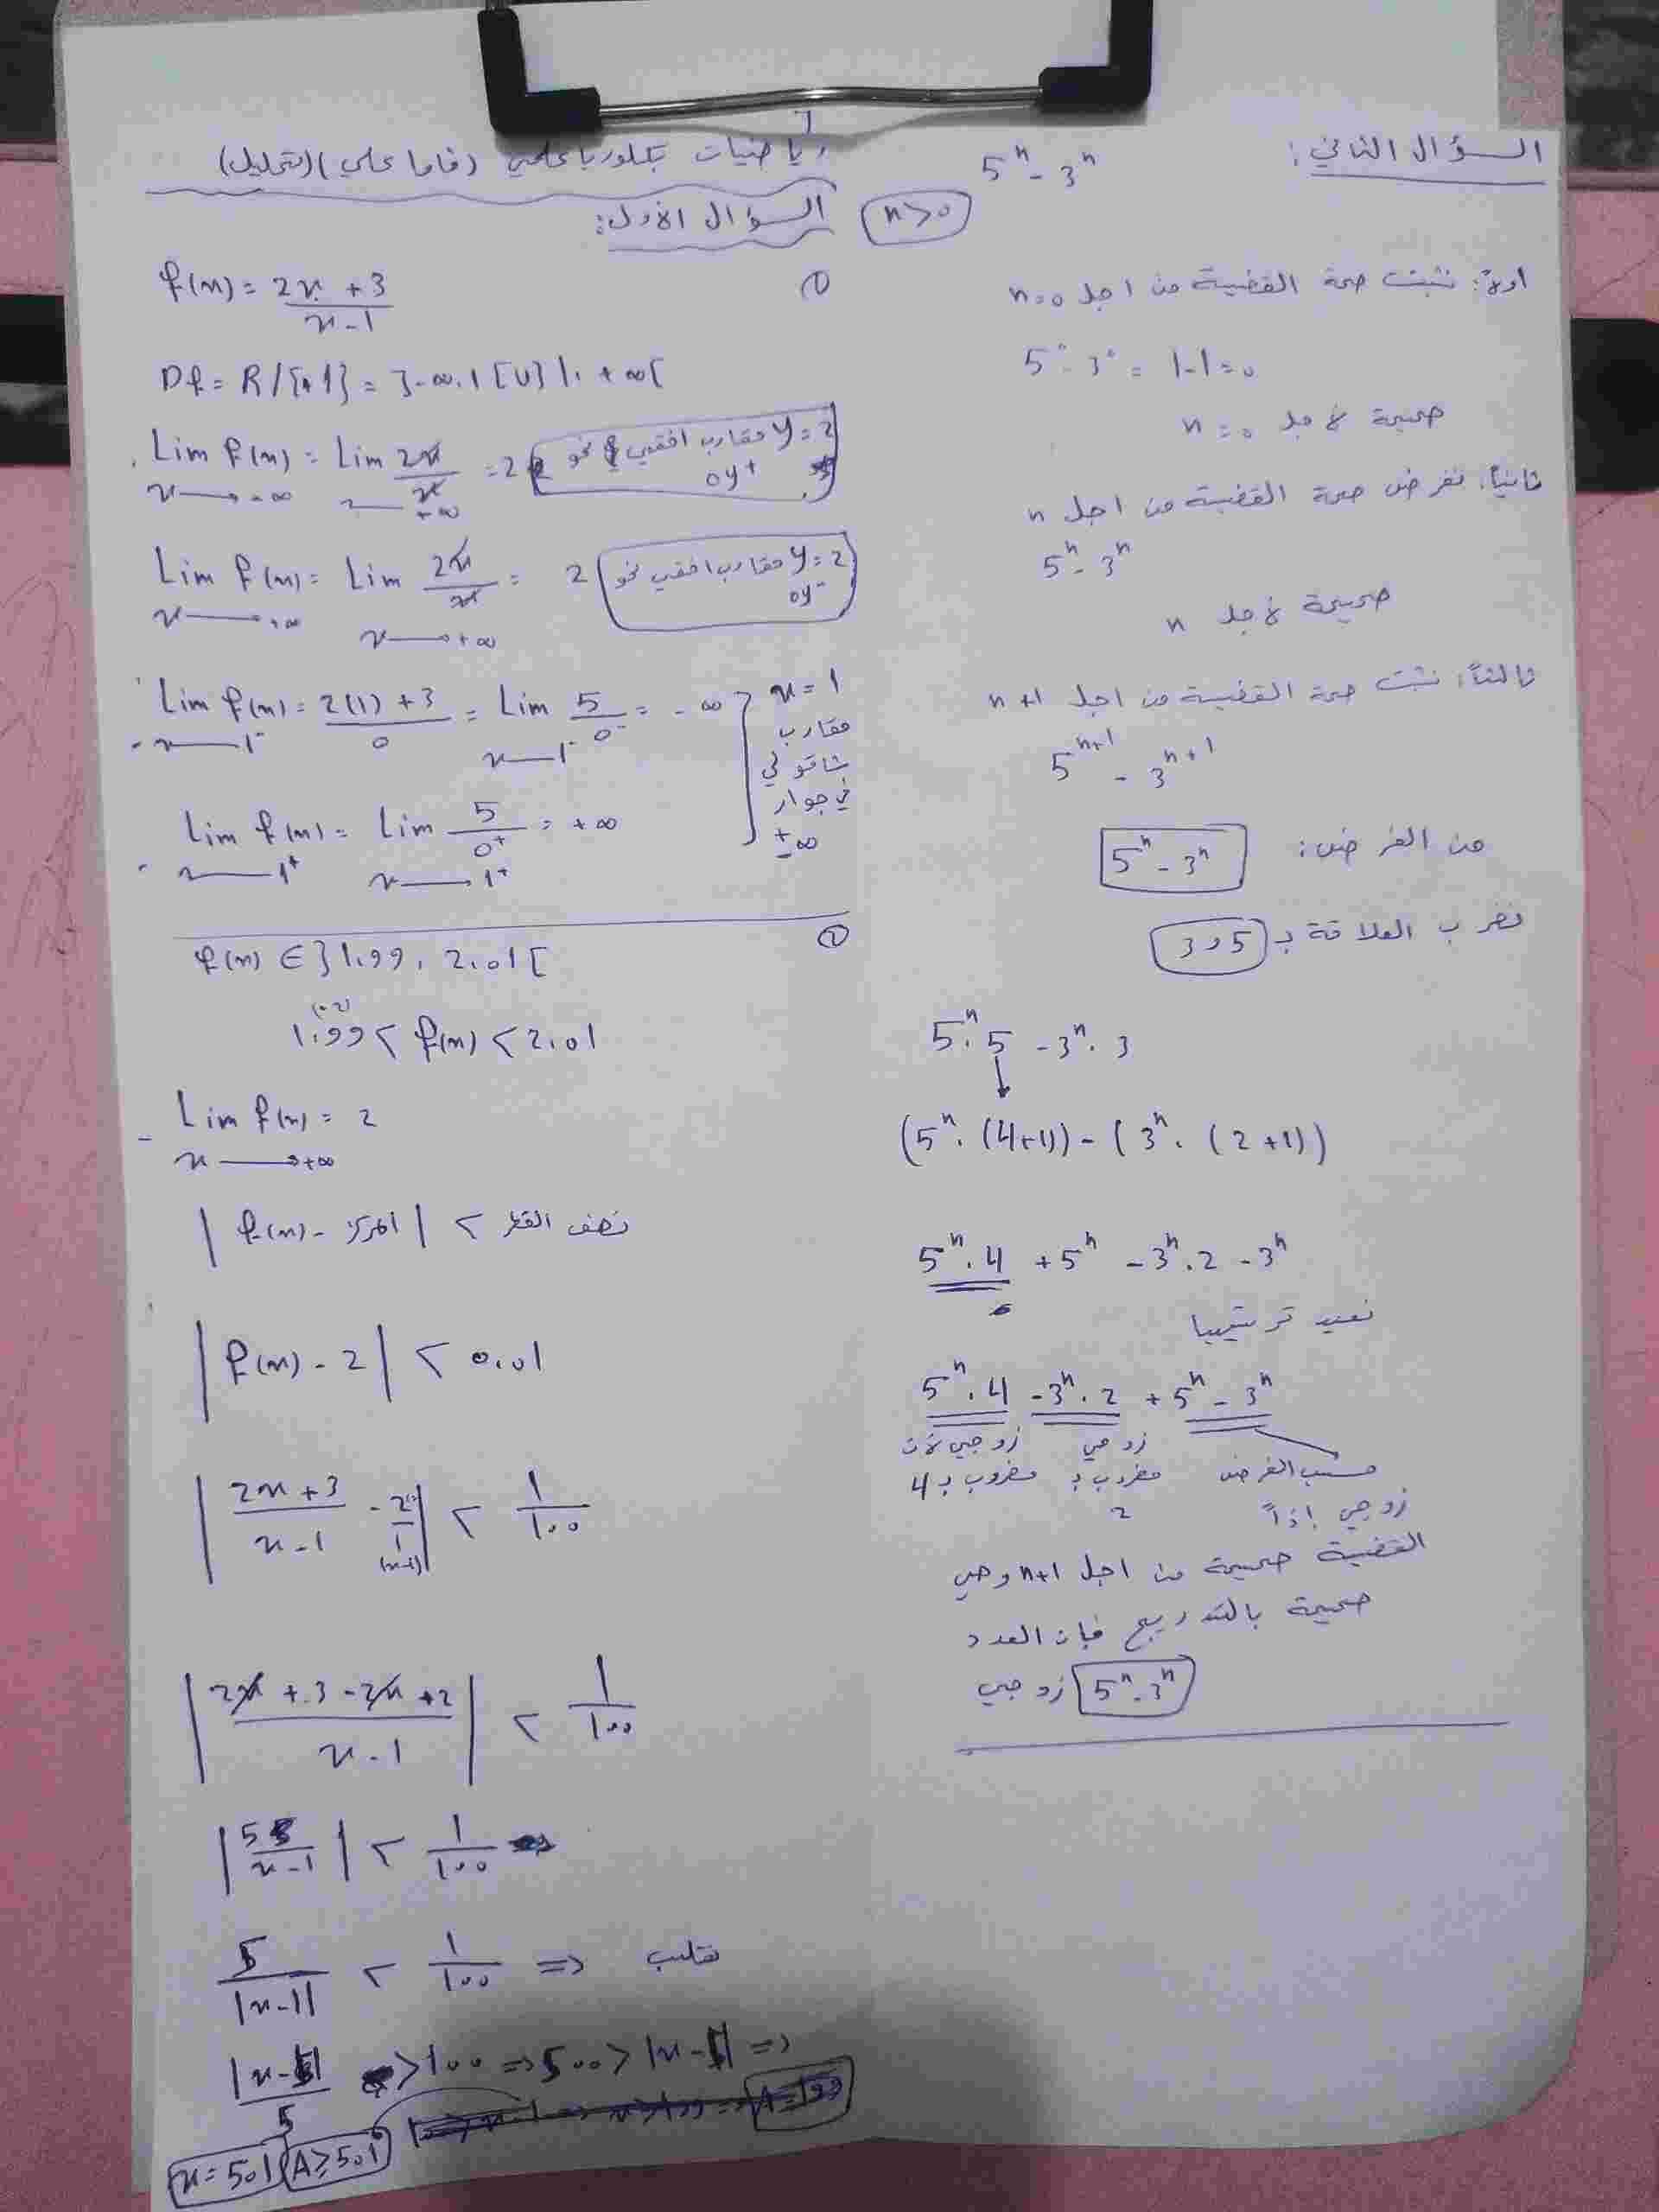 رياضيات بكلوريا علمي (فاما علي) (تحليل)
السؤال الأول:
①
f(x) = 2x + 3 / x - 1
Df = R/{1} = ]-∞, 1[ U ]1, +∞[
Lim f(x) = Lim 2x / x = 2
x → -∞
y = 2 مقارب افقي نحو oy+
Lim f(x) = Lim 2x / x = 2
x → +∞ x → +∞
y = 2 مقارب افقي نحو oy-
Lim f(x) = 2(1) + 3 / 0 = Lim 5 / 0- = -∞
x → 1- x → 1-
Lim f(x) = Lim 5 / 0+ = +∞
x → 1+ x → 1+
x = 1
مقارب
شاقولي
في جوار
±∞
②
f(x) ∈ ]1.99, 2.01[
1.99 < f(x) < 2.01
Lim f(x) = 2
x → +∞
| f(x) - المركز | < نصف القطر
| f(x) - 2 | < 0.01
| 2x + 3 / x - 1 - 2 / 1 | < 1 / 100
(x-1)
| 2x + 3 - 2x + 2 / x - 1 | < 1 / 100
| 5 / x - 1 | < 1 / 100
5 / |x - 1| < 1 / 100 => نقلب
|x - 1| / 5 > 100 => 500 > |x - 1| =>
x = 501 A ≥ 501
السؤال الثاني:
5ⁿ - 3ⁿ
n ≥ 0
اولاً: نثبت صحة القضية من اجل n = 0
5° - 3° = 1 - 1 = 0
صحيحة لأجل n = 0
ثانياً: نفرض صحة القضية من اجل n
5ⁿ - 3ⁿ
صحيحة لأجل n
ثالثاً: نثبت صحة القضية من اجل n+1
5ⁿ⁺¹ - 3ⁿ⁺¹
من الفرض: 5ⁿ - 3ⁿ
نضرب العلاقة بـ 5 و 3
5ⁿ . 5 - 3ⁿ . 3
(5ⁿ . (4+1)) - (3ⁿ . (2+1))
5ⁿ . 4 + 5ⁿ - 3ⁿ . 2 - 3ⁿ
نعيد ترتيبها
5ⁿ . 4 - 3ⁿ . 2 + 5ⁿ - 3ⁿ
زوجي لأن مضروب بـ 4
زوجي مضروب بـ 2
حسب الفرض زوجي إذاً
القضية صحيحة من اجل n+1 وهي
صحيحة بالتدريج فإن العدد
5ⁿ - 3ⁿ زوجي